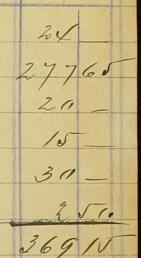 24 —
277 65
20 —
15 —
30 —
2 50
369 15